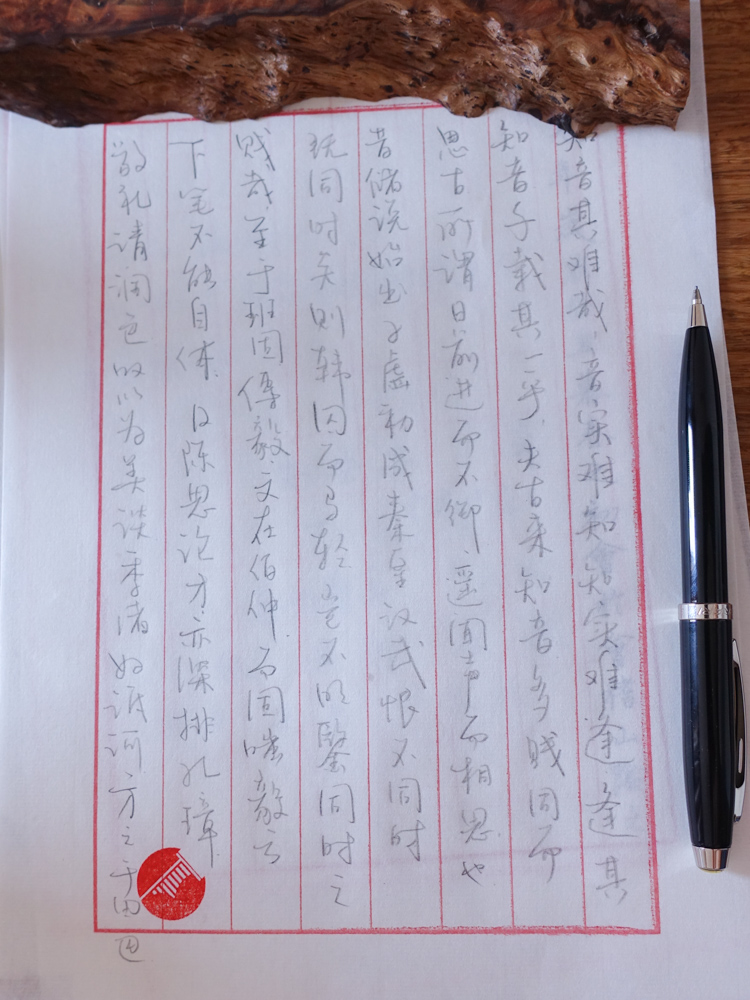 知音其难哉音实难知知实难逢逢其
知音千载其一乎夫古来知音多贱同而
思古所谓日前进而不御遥闻声而相思也
昔储说始出子虚初成秦皇汉武恨不同时
既同时矣则韩囚而马轻岂不明鉴同时之
贱哉至于班固傅毅文在伯仲而固嗤毅云
下笔不能自休及陈思论才亦深排孔璋
敬礼请润色叹以为美谈季绪好诋诃方之于田巴